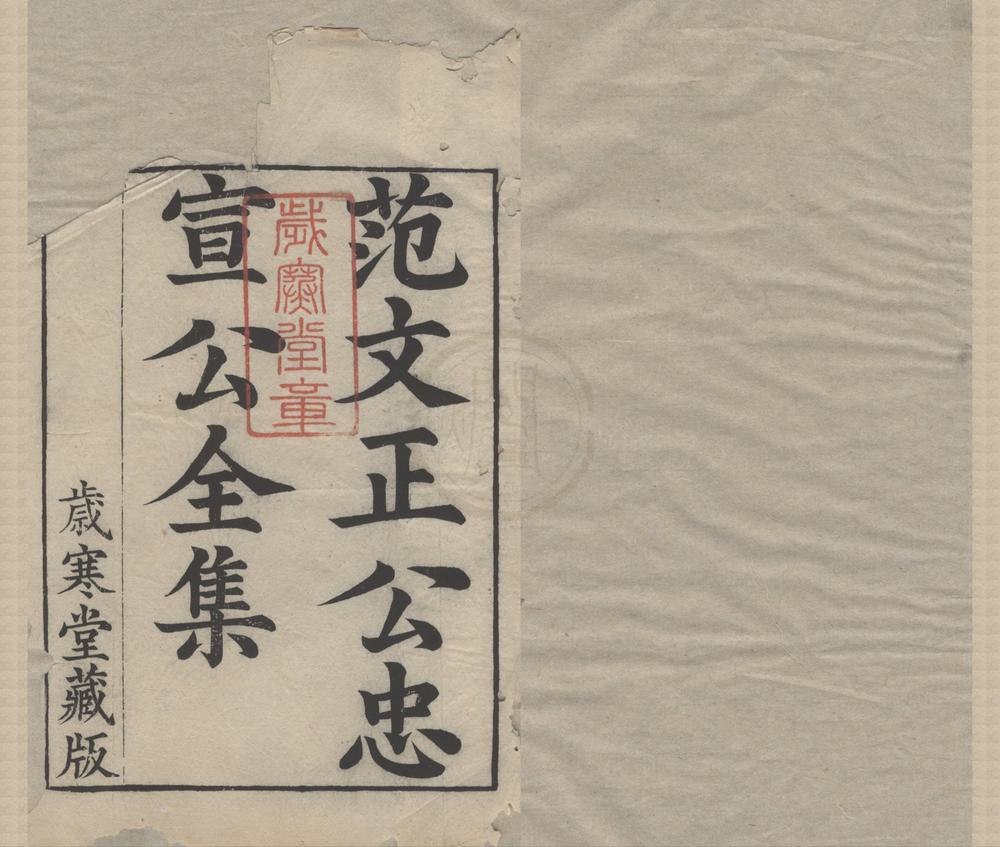 范文正公忠
宣公全集
歳寒堂藏版
歲寒堂章